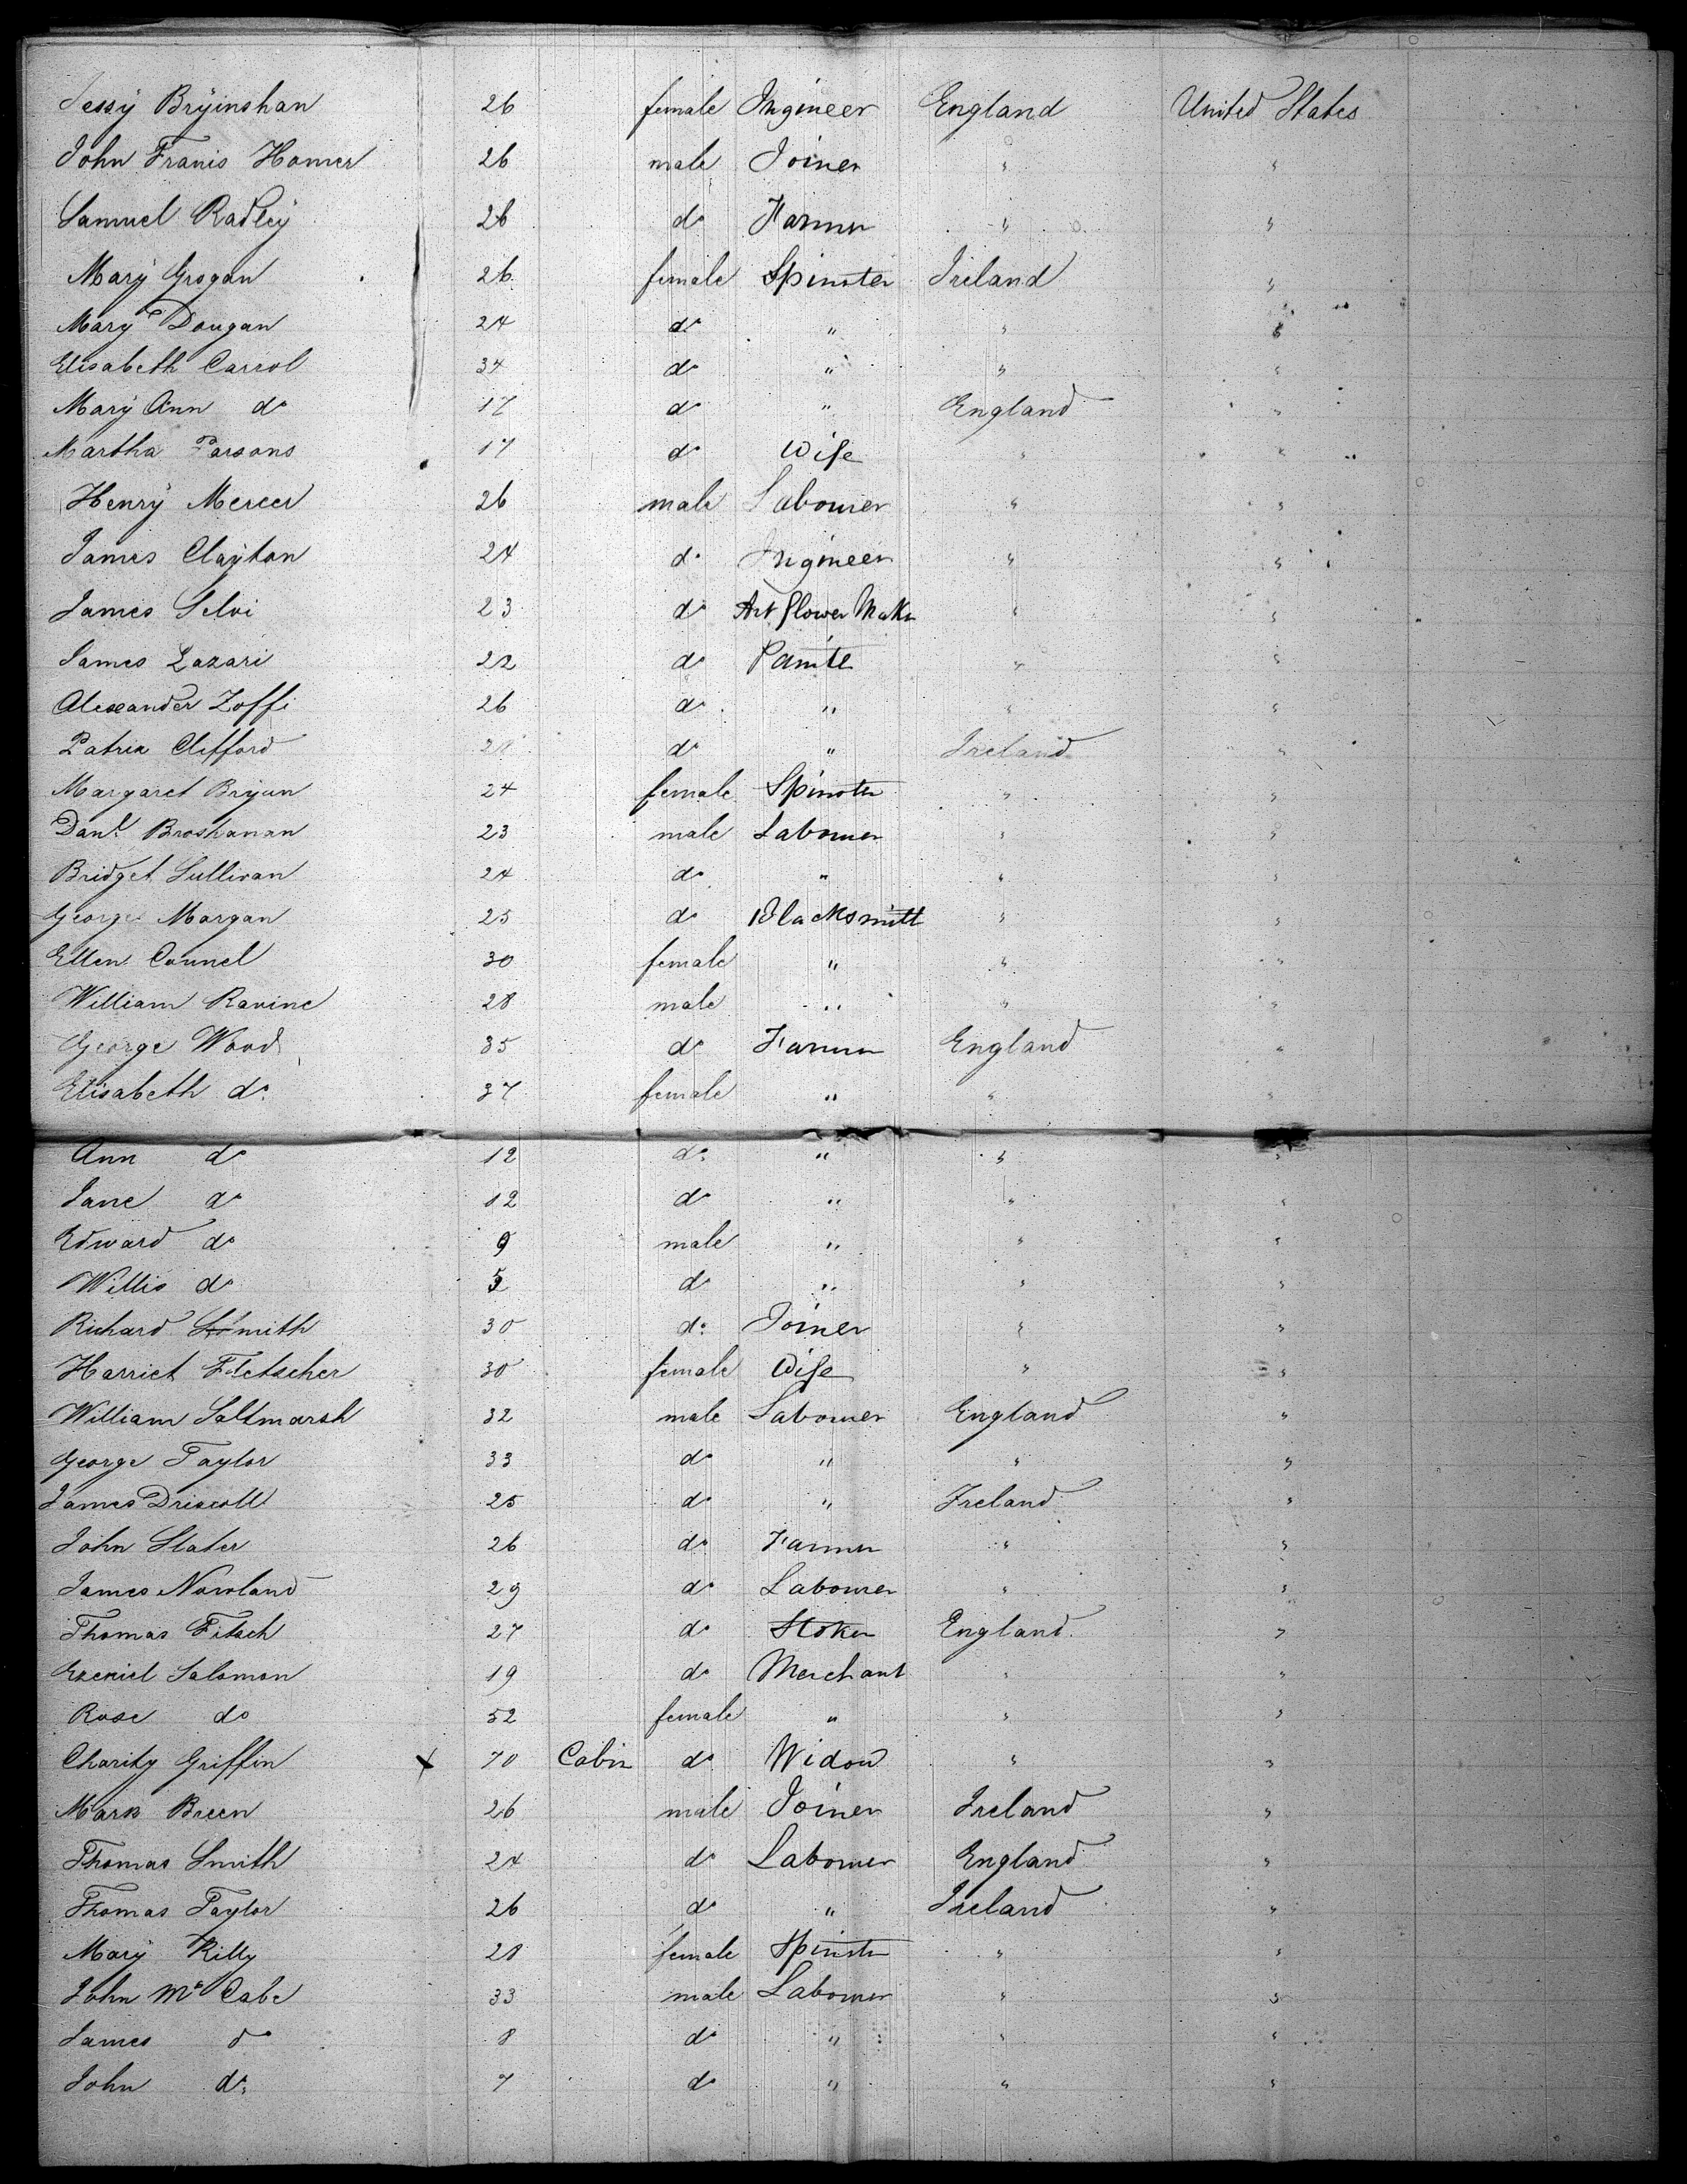 Jessy Bryinshan 26 female Ingineer England United States
John Franis Homer 26 male Joiner " "
Samuel Radley 26 do Farmer " "
Mary Grogan 26 female Spinster Ireland "
Mary Dougan 24 do " " "
Elisabeth Carrol 34 do " " "
Mary Ann do 17 do " England "
Martha Parsons 17 do Wife " "
Henry Mercer 26 male Labourer " "
James Clayton 24 do Ingineer " "
James Selvi 23 do Art flower Maker " "
James Lazari 22 do Painte " "
Alexander Zoffi 26 do " " "
Patrik Clifford do " Ireland "
Margaret Bryan 24 female Spinster " "
Danl. Broshanan 23 male Labourer " "
Bridget Sullivan 24 do " " "
George Morgan 25 do Blacksmitt " "
Ellen Connel 30 female " " "
William Ravine 28 male " " "
George Wood 35 do Farmer England "
Elisabeth do 37 female " " "
Ann do 12 do " " "
Jane do 12 do " " "
Edward do 9 male " " "
Willis do 5 do " " "
Richard Smith 30 do Joiner " "
Harriet Fletscher 30 female Wife " "
William Saltmarsh 32 male Labourer England "
George Taylor 33 do " " "
James Driscoll 25 do " Ireland "
John Slater 26 do Farmer " "
James Nowland 29 do Labourer " "
Thomas Fitsch 27 do Stoker England "
Ezekiel Salomon 19 do Merchant " "
Rose do 52 female " " "
Charity Griffin x 70 Cabin do Widow " "
Mark Breen 26 male Joiner Ireland "
Thomas Smith 24 do Labourer England "
Thomas Taylor 26 do " Ireland "
Mary Killy 28 female Spinster " "
John Mc Cabe 33 male Labourer " "
James do 8 do " " "
John do 7 do " " "